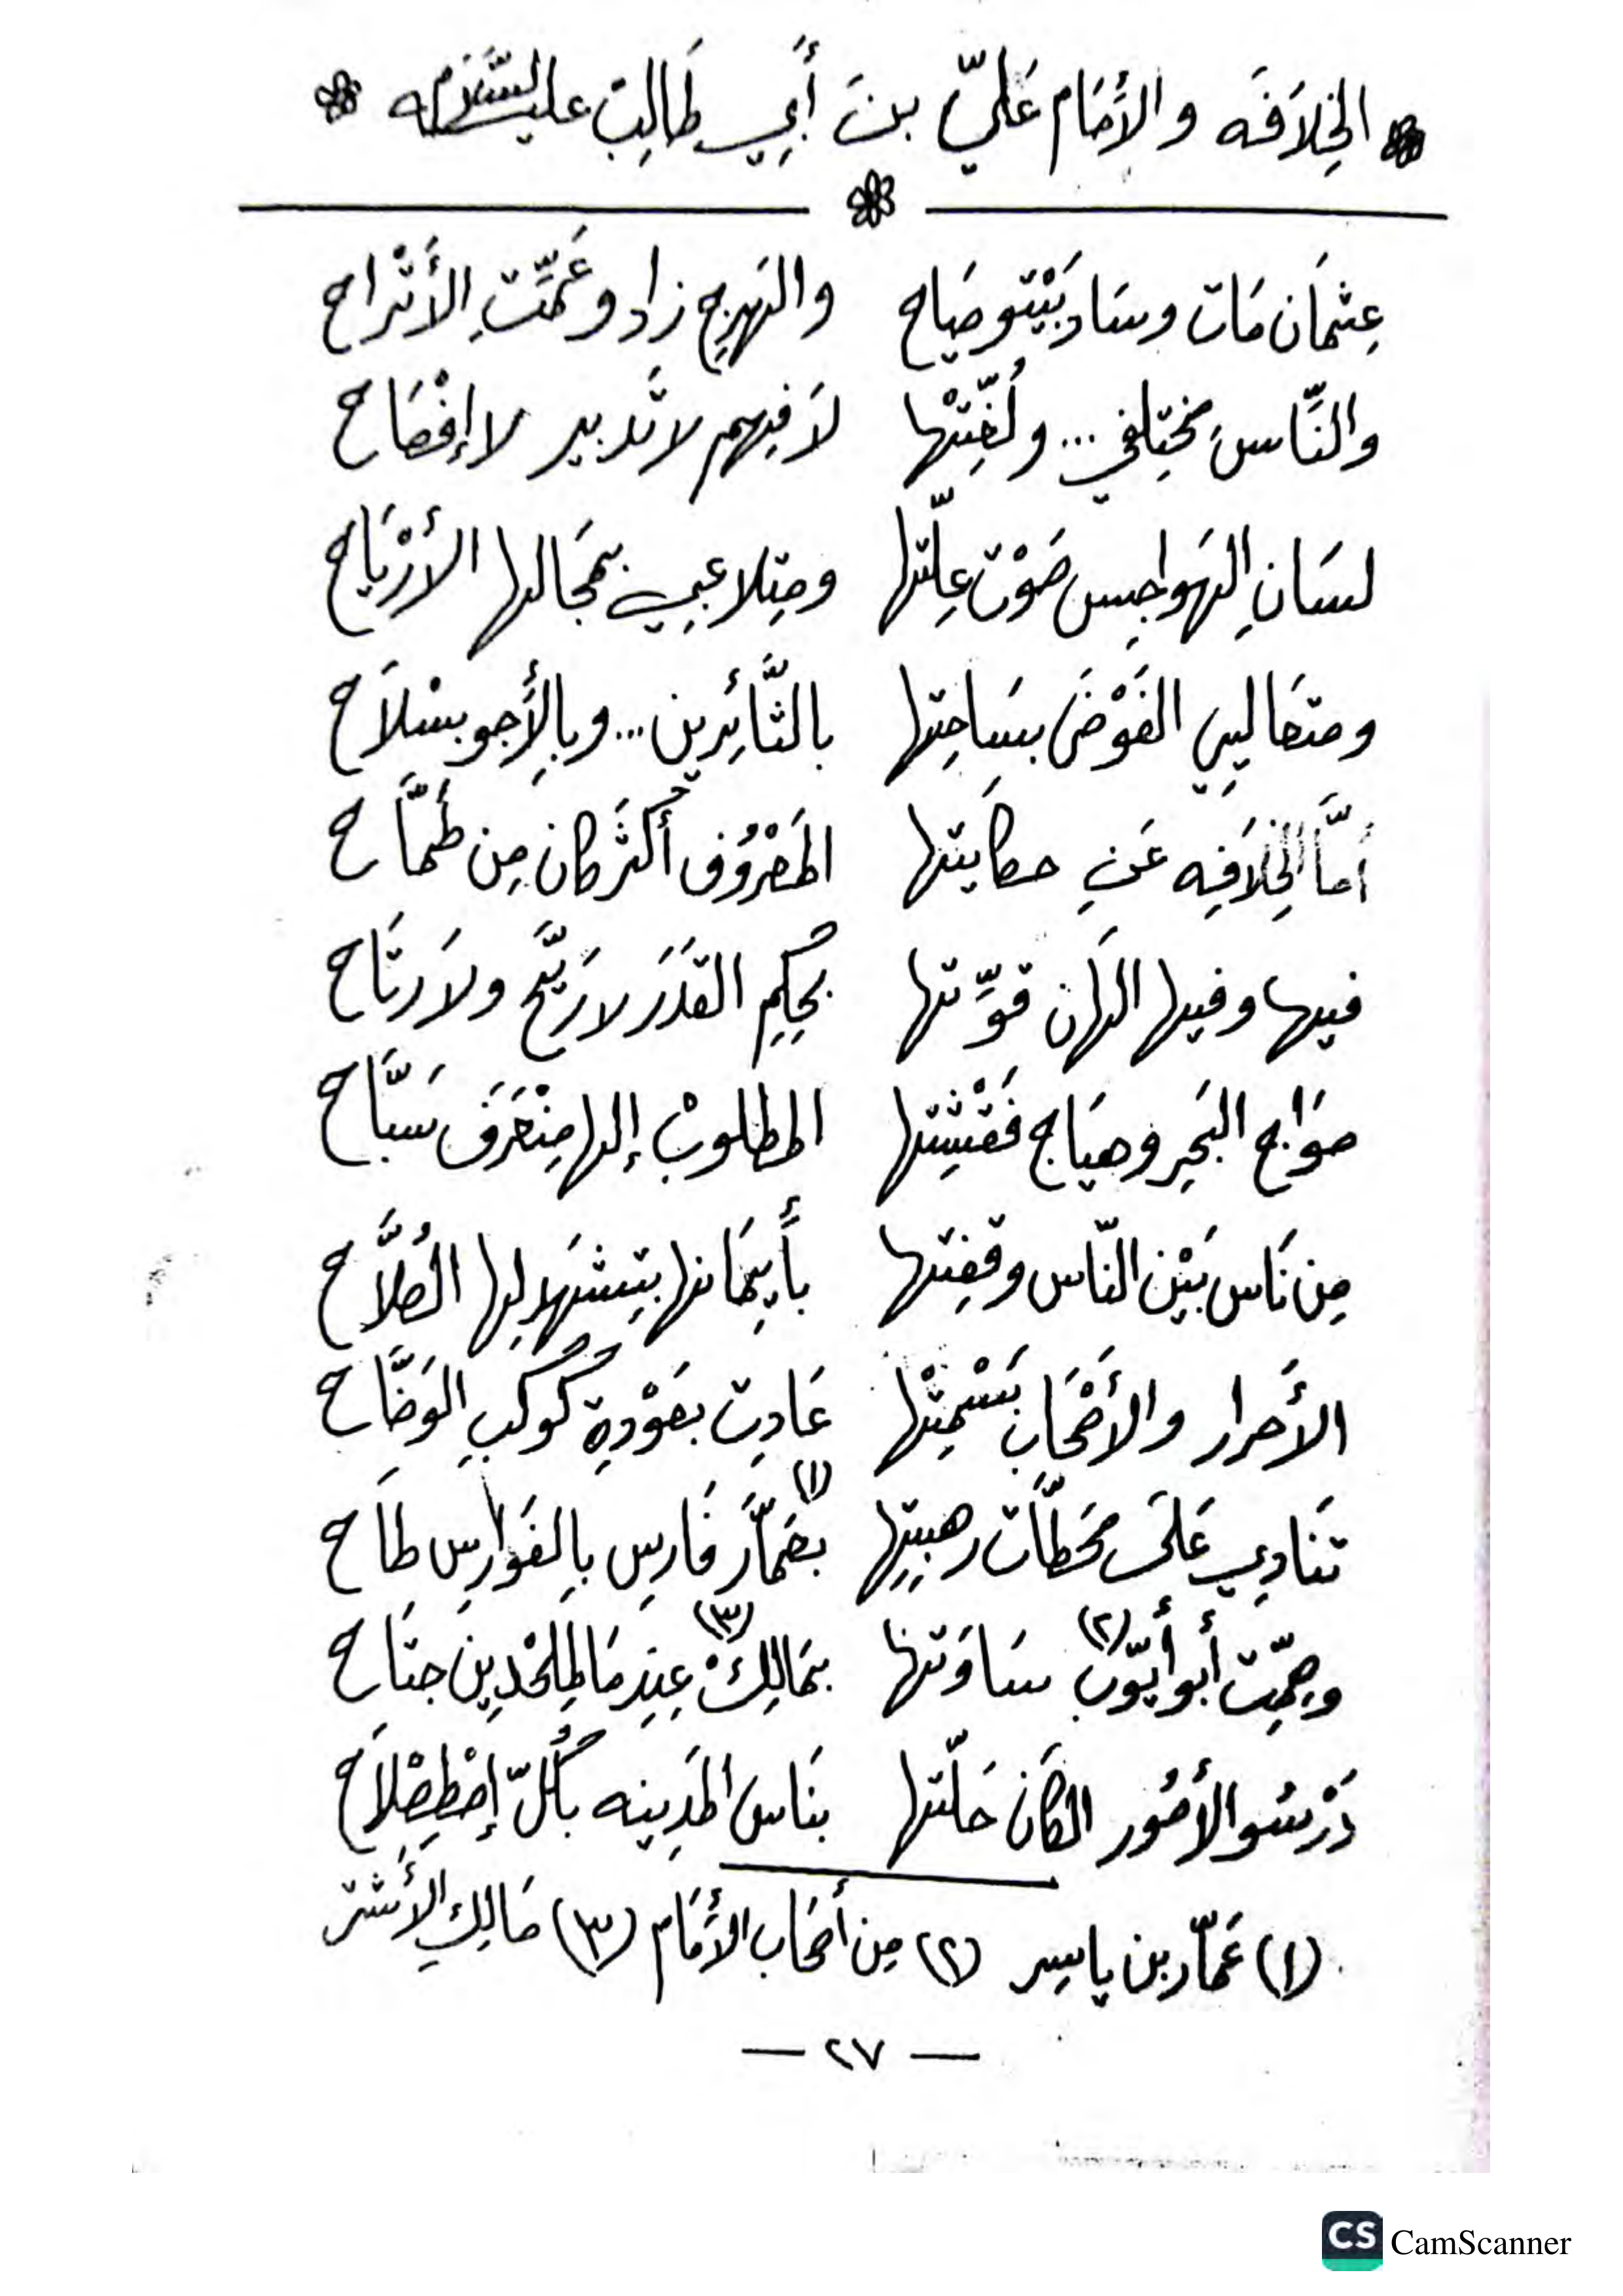 الخِلاَفَه والأَمَام عَليّ بن أَبي طَالِب عليه السَّلام
عِثمَان مَات وسَاد بَيْتو صَيَاح والهَرِج زاد وعَمَّتِ الأَتْراح
والنَّاس مختِلفي... ولُغِّتْها لاَ فِيهم لا تَدبير لا إفْصَاح
لسَانِ الهَواجِس صَوْت عِلّتها ومِتلاعبِي بمَجَالها الأَرْيَاح
ومتعَاليي الفَوْضَى بسَاحِتها بالثَّائِرين... وبالأَجو بسْلاَح
أمَّا الخِلاَفِه عَنِ حكايتها المَعْرُوف أكثَر كان مِن طَمَّاح
فيها وفيها الهان قوِّتها بحِكِم القَدَر لا رَيَّح ولا رتَاح
مَوَاج البَحِر وهيَاج فَقْشِتها المطلوبْ إلها مِنْعَرَف سَبَّاح
مِن نَاس بَيْن النّاس وقفِتها بأَيمَانها بتِشهَد لها الصُلاَّح
الأَحرار والأَصْحَاب بَسْمِتْها عَادِت بعَوْدةِ كَوكبِ الوَضَّاح
تنَادِي عَلَى محَطَّات رهبِتِها بعَمَّار (١) فَارِس بِالفَوارِس طَاح
وهِمِّت أبو أيّوب (٢) سَاوَتها بمَالِكْ (٣) عِنِد مَا لِلمِلحْدِين جتَاح
دَرْسُو الأمُور الكَان حَلّتها بنَاس المَدِينه بكُلّ إصْطِصْلاَح
(١) عَمَّار بن ياسِر (٢) مِن أصحَاب الأَمَام (٣) مَالِك الأَشتَر
— ٢٧ —
CS CamScanner